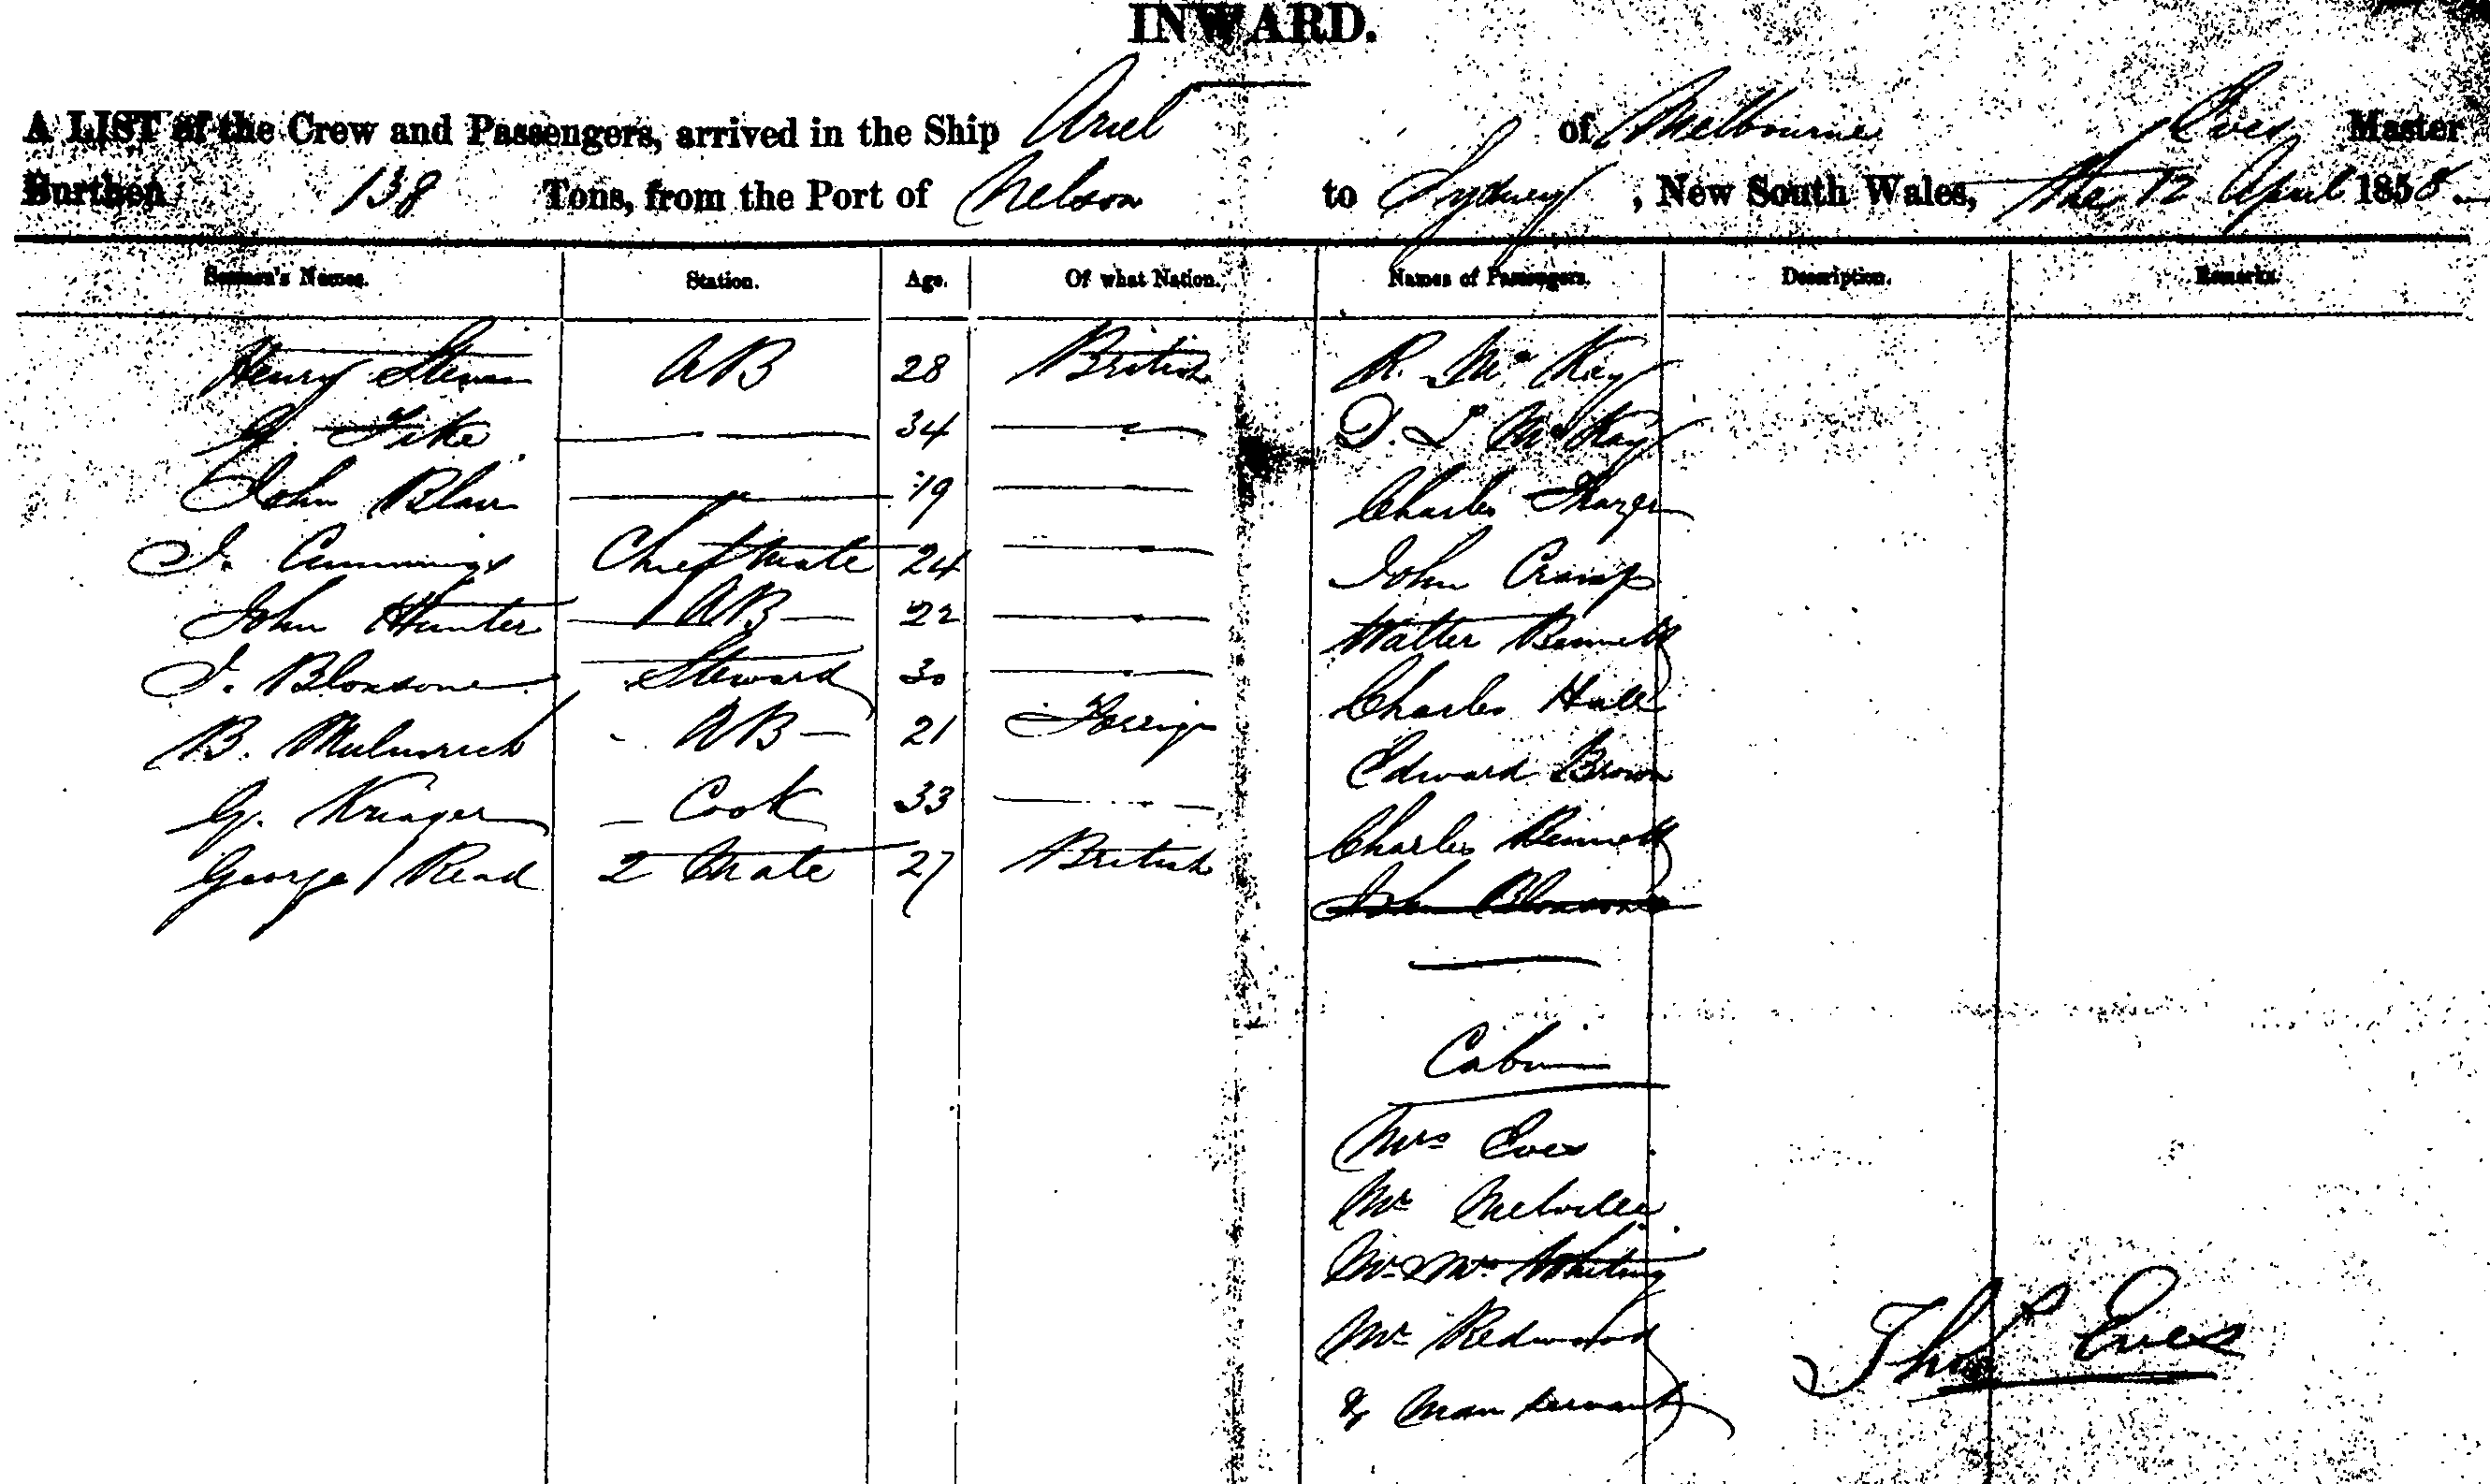 INWARD.
A LIST of the Crew and Passengers, arrived in the Ship Ariel of Melbourne Eves Master
Burthen 138 Tons, from the Port of Nelson to Sydney, New South Wales, the 12 April 1858.
Seamen's Names. Station. Age. Of what Nation. Names of Passengers. Description. Remarks.
Henry AB 28 British R. Mc Kay
Fike 34 D. L Mc Kay
John Blair 19 Charles
J. Cummings Chief Mate 24 John Cramp
John Hunter AB 22 Walter Bennett
J. Bloxsone Steward 30 Charles Hall
B. AB 21 Foreign Edward Brown
G. Kruager Cook 33 Charles Bennett
George Read 2 Mate 27 British John Bloxsone
Cabin
Mrs Eves
Mr Melville
Mr & Mrs Whiting
Mr Redwood
& Man Servant
Thos Eves